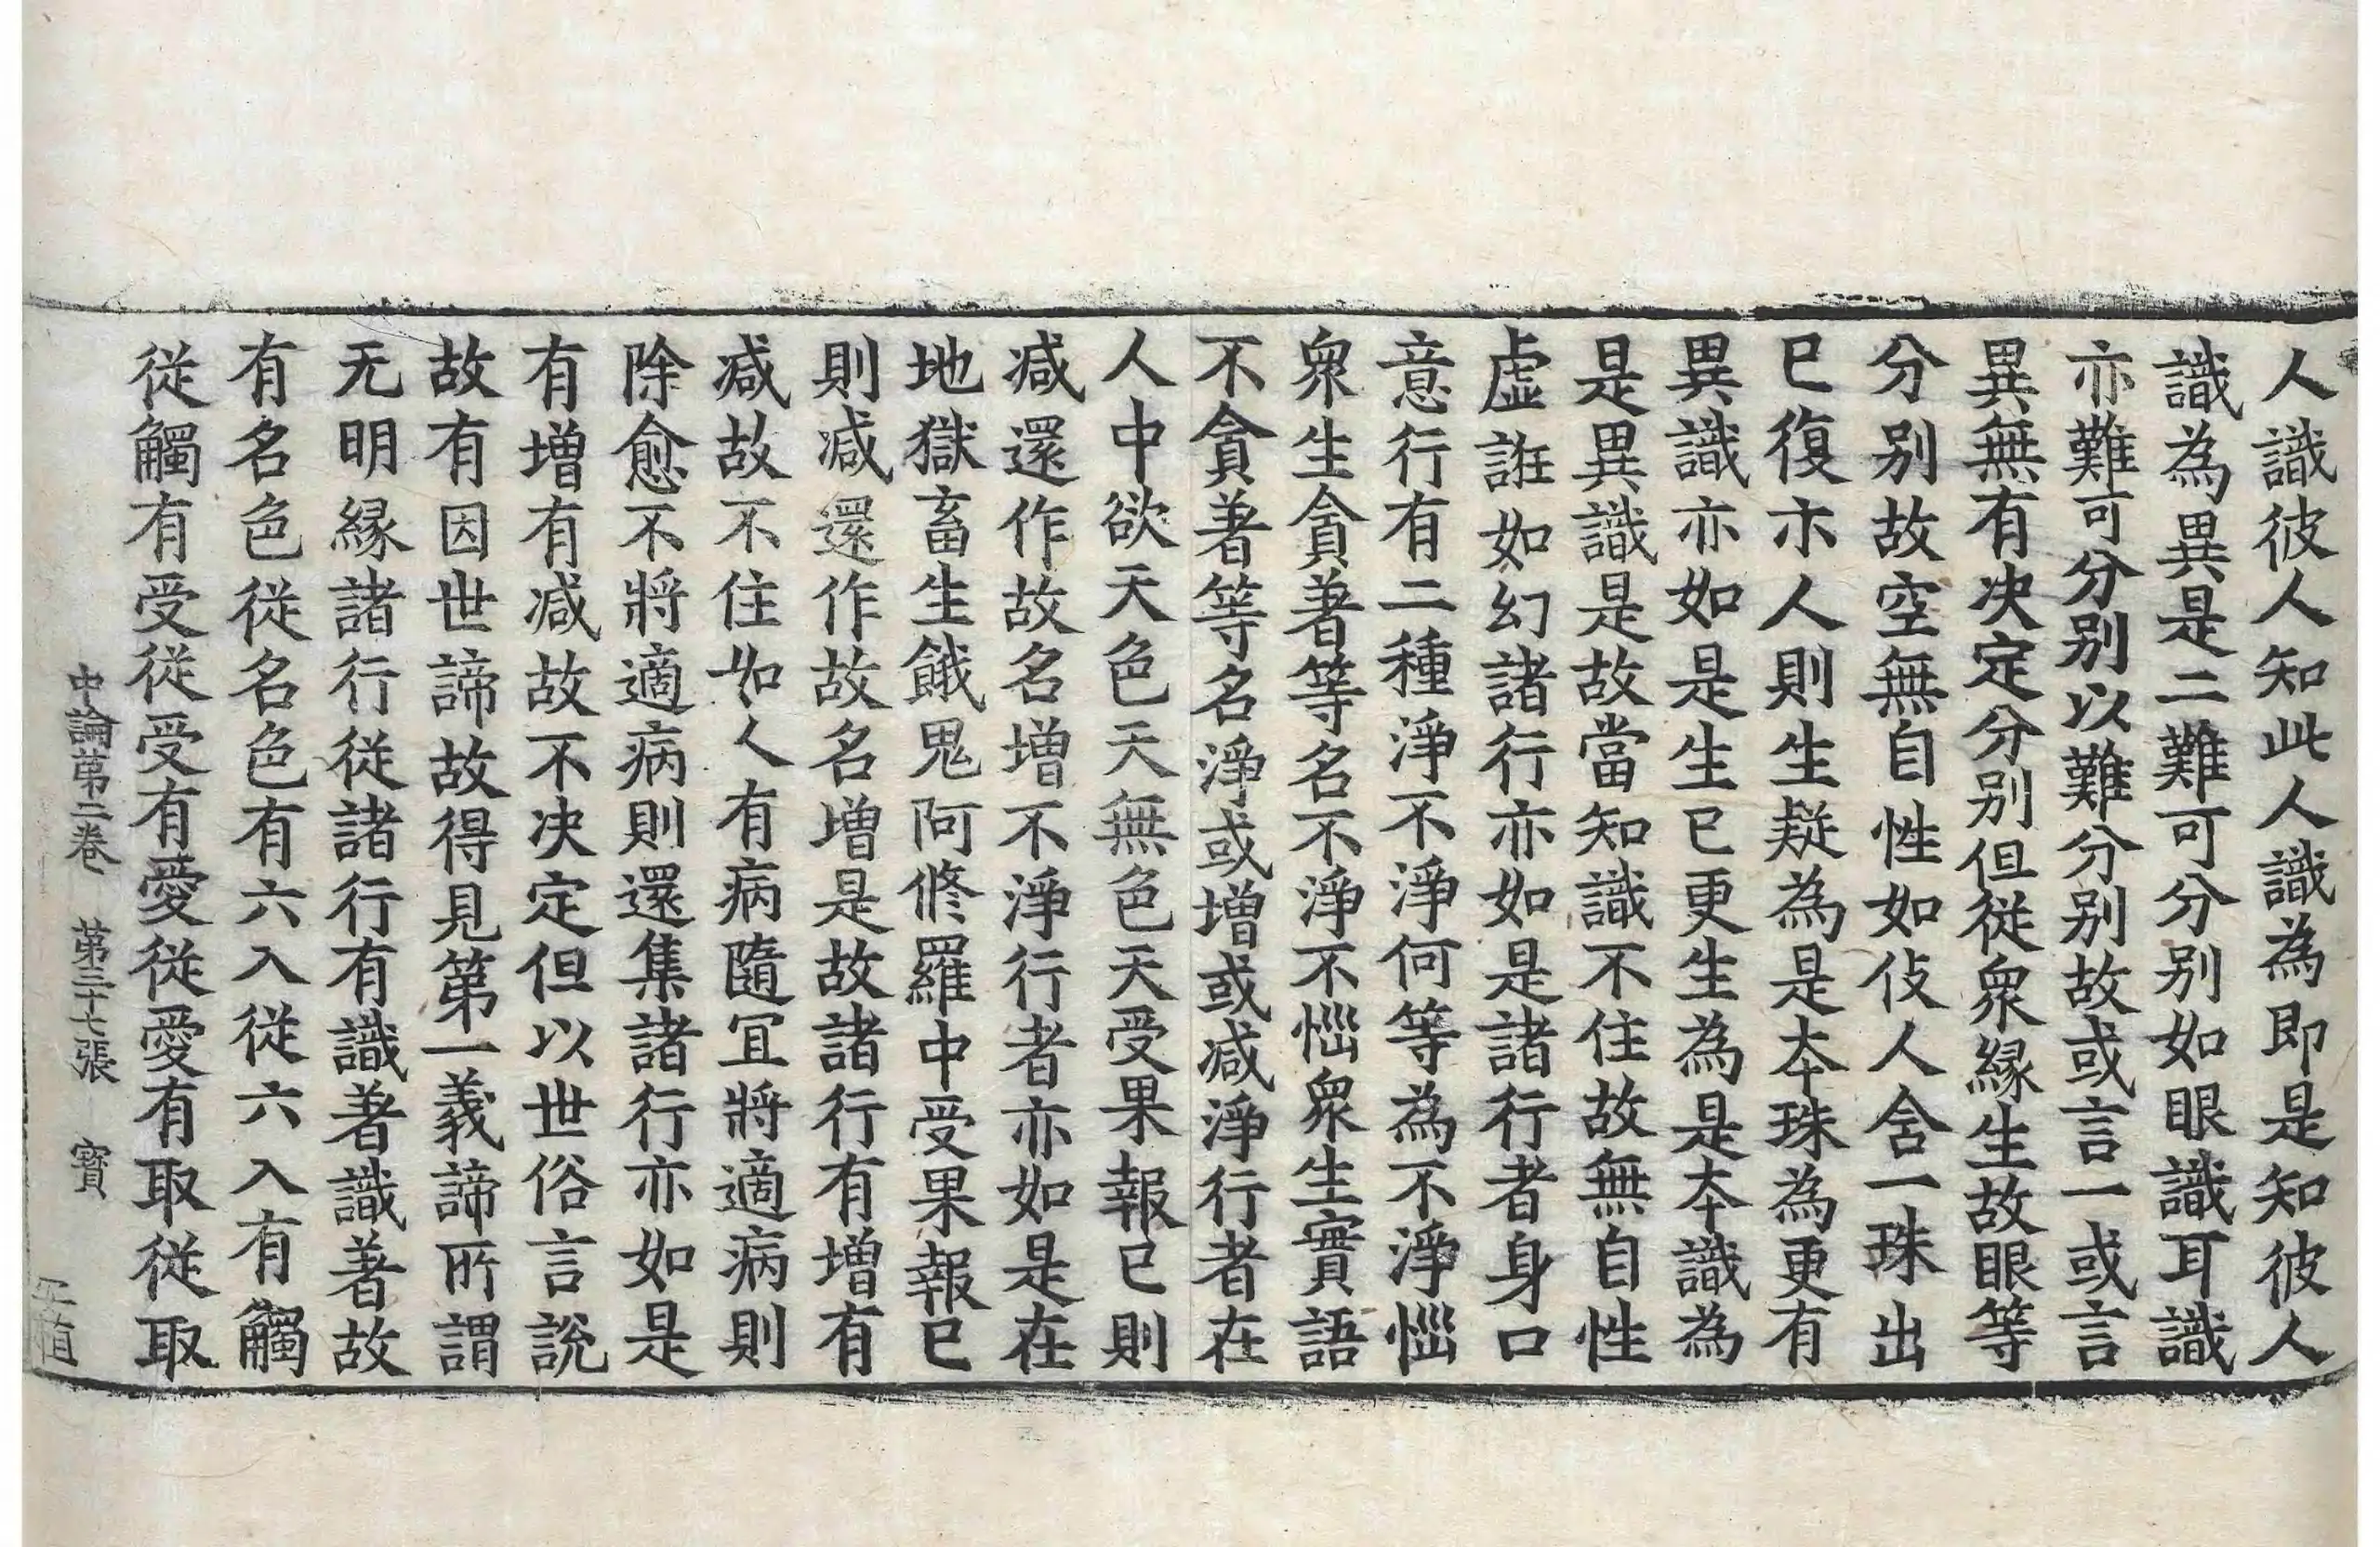 人識彼人知此人識為即是知彼人
識為異是二難可分別如眼識耳識
亦難可分別以難分別故或言一或言
異無有決定分別但從衆緣生故眼等
分別故空無自性如伎人含一珠出
已復示人則生疑為是本珠為更有
異識亦如是生已更生為是本識為
是異識是故當知識不住故無自性
虛誑如幻諸行亦如是諸行者身口
意行有二種淨不淨何等為不淨惱
衆生貪著等名不淨不惱衆生實語
不貪著等名淨或增或減淨行者在
人中欲天色天無色天受果報已則
減還作故名增不淨行者亦如是在
地獄畜生餓鬼阿修羅中受果報已
則減還作故名增是故諸行有增有
減故不住如人有病隨宜將適病則
除愈不將適病則還集諸行亦如是
有增有減故不決定但以世俗言說
故有因世諦故得見第一義諦所謂
无明緣諸行從諸行有識著識著故
有名色從名色有六入從六入有觸
從觸有受從受有愛從愛有取從取
中論第二卷 第三十七張 寶